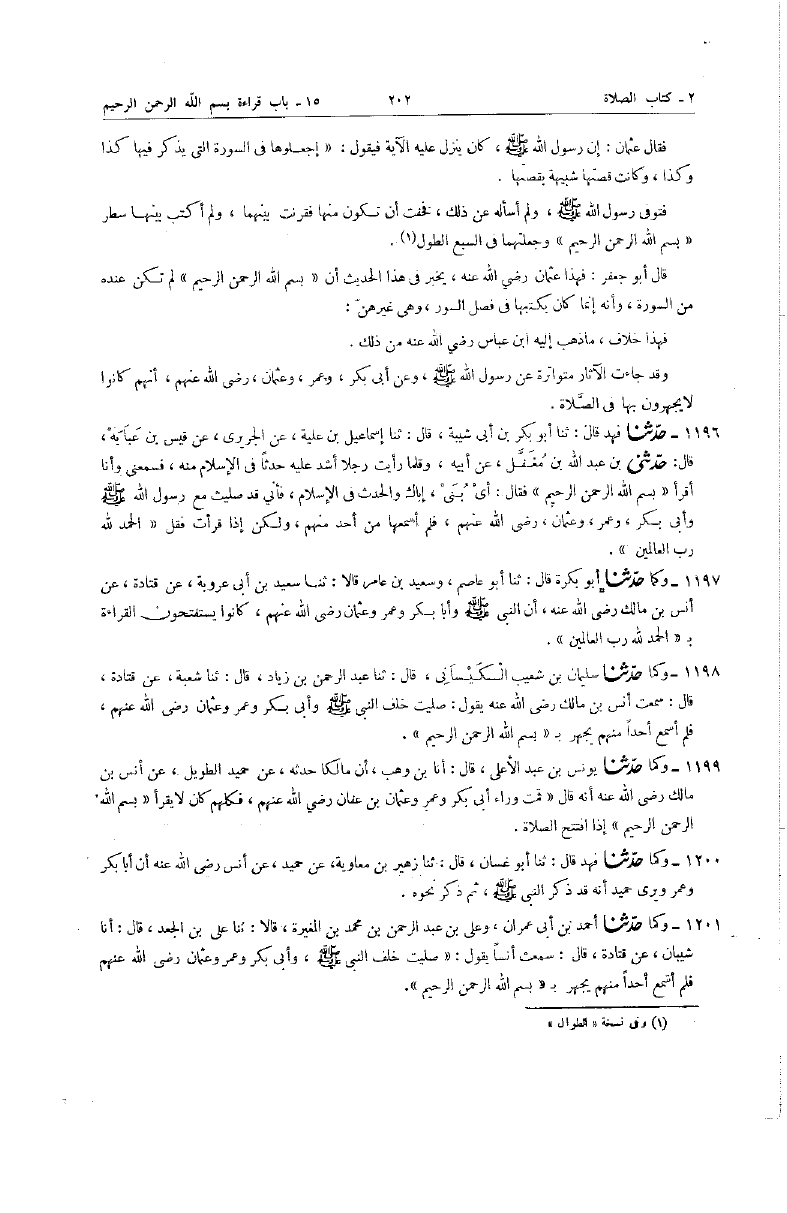 ٢ ـ كتاب الصلاة ٢٠٢ ١٥ ـ باب قراءة بسم الله الرحمن الرحيم
فقال عثمان : إن رسول الله ﷺ ، كان ينزل عليه الآية فيقول : « إجعلوها فى السورة التى يذكر فيها كذا
وكذا ، وكانت قصتها شبيهة بقصتها .
فتوفى رسول الله ﷺ ، ولم أسأله عن ذلك ، فخفت أن تكون منها فقرنت بينهما ، ولم أكتب بينهما سطار
« بسم الله الرحمن الرحيم » وجعلتهما فى السبع الطول(١) .
قال أبو جعفر : فهذا عثمان رضي الله عنه ، يخبر فى هذا الحديث أن « بسم الله الرحمن الرحيم » لم تكن عنده
من السورة ، وأنه إنما كان يكتبها فى فصل السور ، وهى غيرهنّ :
فهذا خلاف ، ماذهب إليه ابن عباس رضي الله عنه من ذلك .
وقد جاءت الآثار متواترة عن رسول الله ﷺ ، وعن أبى بكر ، وعمر ، وعثمان ، رضى الله عنهم ، أنهم كانوا
لايجهرون بها فى الصَّلاة .
١١٩٦ ـ حدّثنا فهد قال : ثنا أبو بكر بن أبى شيبة ، قال : ثنا إسماعيل بن علية ، عن الجريرى ، عن قيس بن عَبَايَةَ ،
قال : حدّثنى بن عبد الله بن مُغَفَّل ، عن أبيه ، وقلما رأيت رجلا أشد عليه حدثاً فى الإسلام منه ، فسمعنى وأنا
أقرأ « بسم الله الرحمن الرحيم » فقال : أىْ بُنَىَّ ، إياك والحدث فى الإسلام ، فأنى قد صليت مع رسول الله ﷺ
وأبى بكر ، وعمر ، وعثمان ، رضى الله عنهم ، فلم أسمعها من أحد منهم ، ولكن إذا قرأت فقل « الحمد لله
رب العالمين » .
١١٩٧ ـ وكما حدّثنا أبو بكرة قال : ثنا أبو عاصم ، وسعيد بن عامر قالا : ثنا سعيد بن أبى عروبة ، عن قتادة ، عن
أنس بن مالك رضى الله عنه ، أن النبى ﷺ وأبا بكر وعمر وعثمان رضى الله عنهم ، كانوا يستفتحون القراءة
بـ « الحمد لله رب العالمين » .
١١٩٨ ـ وكما حدّثنا سليمان بن شعيب الكَيْسَانِى ، قال : ثنا عبد الرحمن بن زياد ، قال : ثنا شعبة ، عن قتادة ،
قال : سمعت أنس بن مالك رضى الله عنه يقول : صليت خلف النبى ﷺ وأبى بكر وعمر وعثمان رضى الله عنهم ،
فلم أسمع أحداً منهم يجهر بـ « بسم الله الرحمن الرحيم » .
١١٩٩ ـ وكما حدّثنا يونس بن عبد الأعلى ، قال : أنا بن وهب ، أن مالكا حدثه ، عن حميد الطويل ، عن أنس بن
مالك رضى الله عنه أنه قال « قمت وراء أبى بكر وعمر وعثمان بن عفان رضي الله عنهم ، فكلهم كان لايقرأ « بسم الله
الرحمن الرحيم » إذا افتتح الصلاة .
١٢٠٠ ـ وكما حدّثنا فهد قال : ثنا أبو غسان ، قال : ثنا زهير بن معاوية، عن حميد ، عن أنس رضى الله عنه أن أبا بكر
وعمر ويرى حميد أنه قد ذكر النبى ﷺ ، ثم ذكر نحوه .
١٢٠١ ـ وكما حدّثنا أحمد بن أبى عمران ، وعلى بن عبد الرحمن بن محمد بن المغيرة ، قالا : ثنا على بن الجعد ، قال : أنا
شيبان ، عن قتادة ، قال : سمعت أنساً يقول : « صليت خلف النبى ﷺ ، وأبى بكر وعمر وعثمان رضي الله عنهم
فلم أسمع أحداً منهم يجهر بـ « بسم الله الرحمن الرحيم ».
(١) وفى نسخة « الطوال »